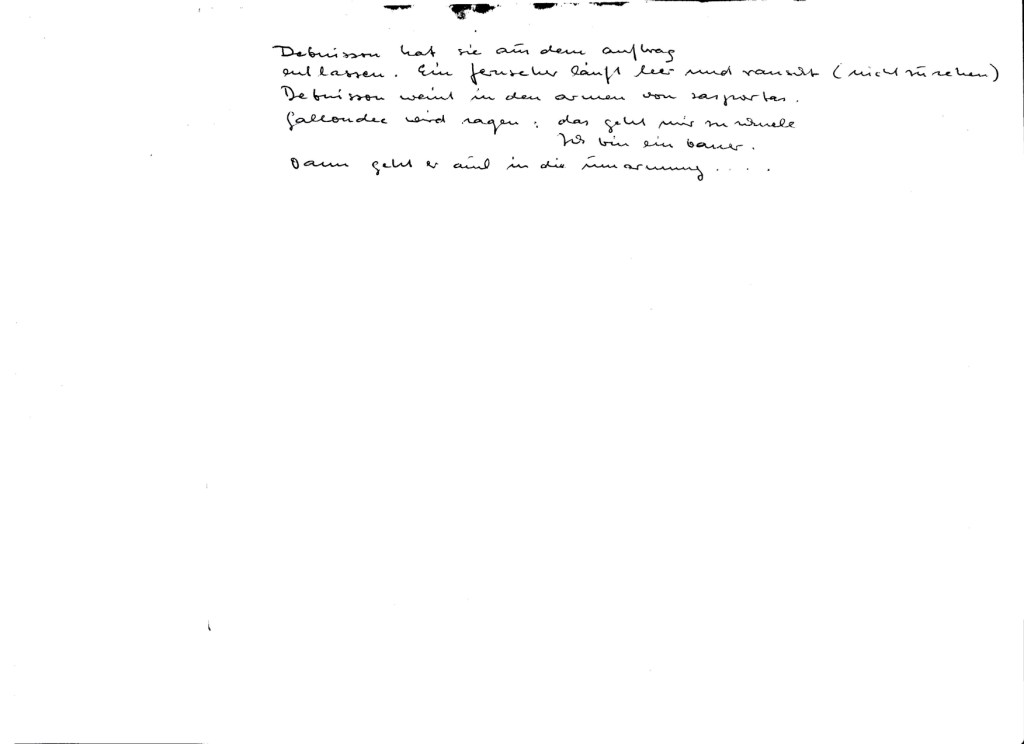 Debuisson hat sie aus dem auftrag
entlassen. Ein fernseher läuft leer und rauscht (nicht zu sehen)
Debuisson weint in den armen von sasportas.
Galloudec wird sagen: das geht mir zu schnell
Ich bin ein bauer.
Dann geht er auch in die umarmung....